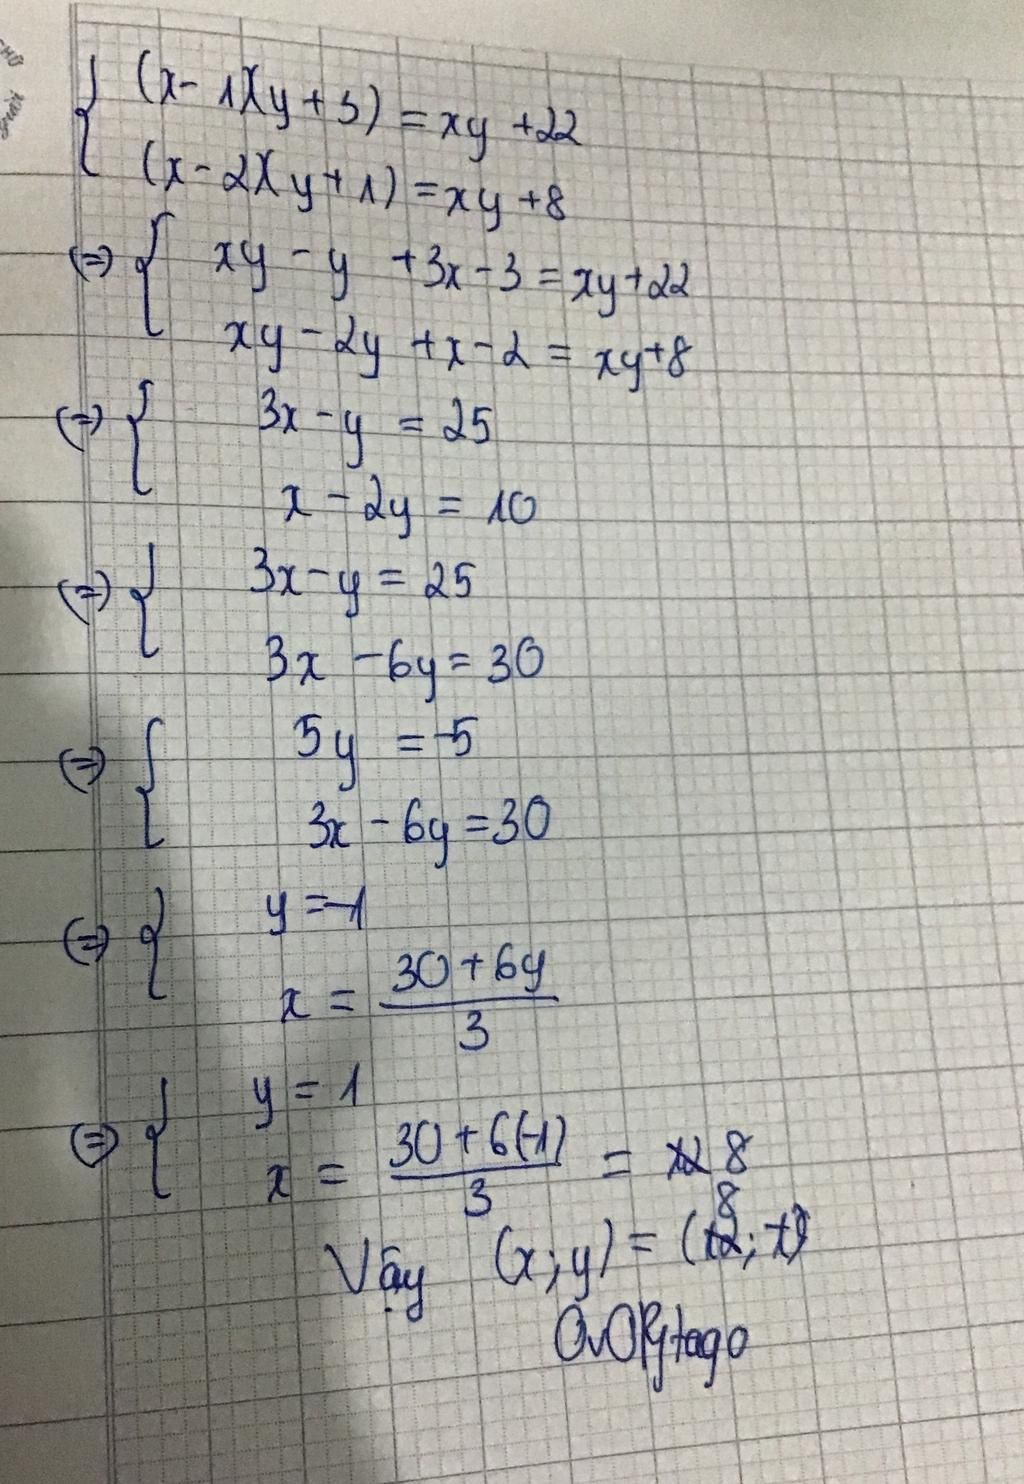 { (x-1)(y+3) = xy +22
(x-2)(y+1) = xy +8
(=) { xy - y +3x-3 = xy+22
xy-2y +x-2 = xy+8
(=) { 3x-y = 25
x-2y = 10
(=) { 3x-y = 25
3x -6y = 30
(=) { 5y = -5
3x-6y = 30
(=) { y = -1
x = \frac{30+6y}{3}
(=) { y = 1
x = \frac{30+6(-1)}{3} = 8
Vậy (x;y) = (8; -1)
OvOPytago